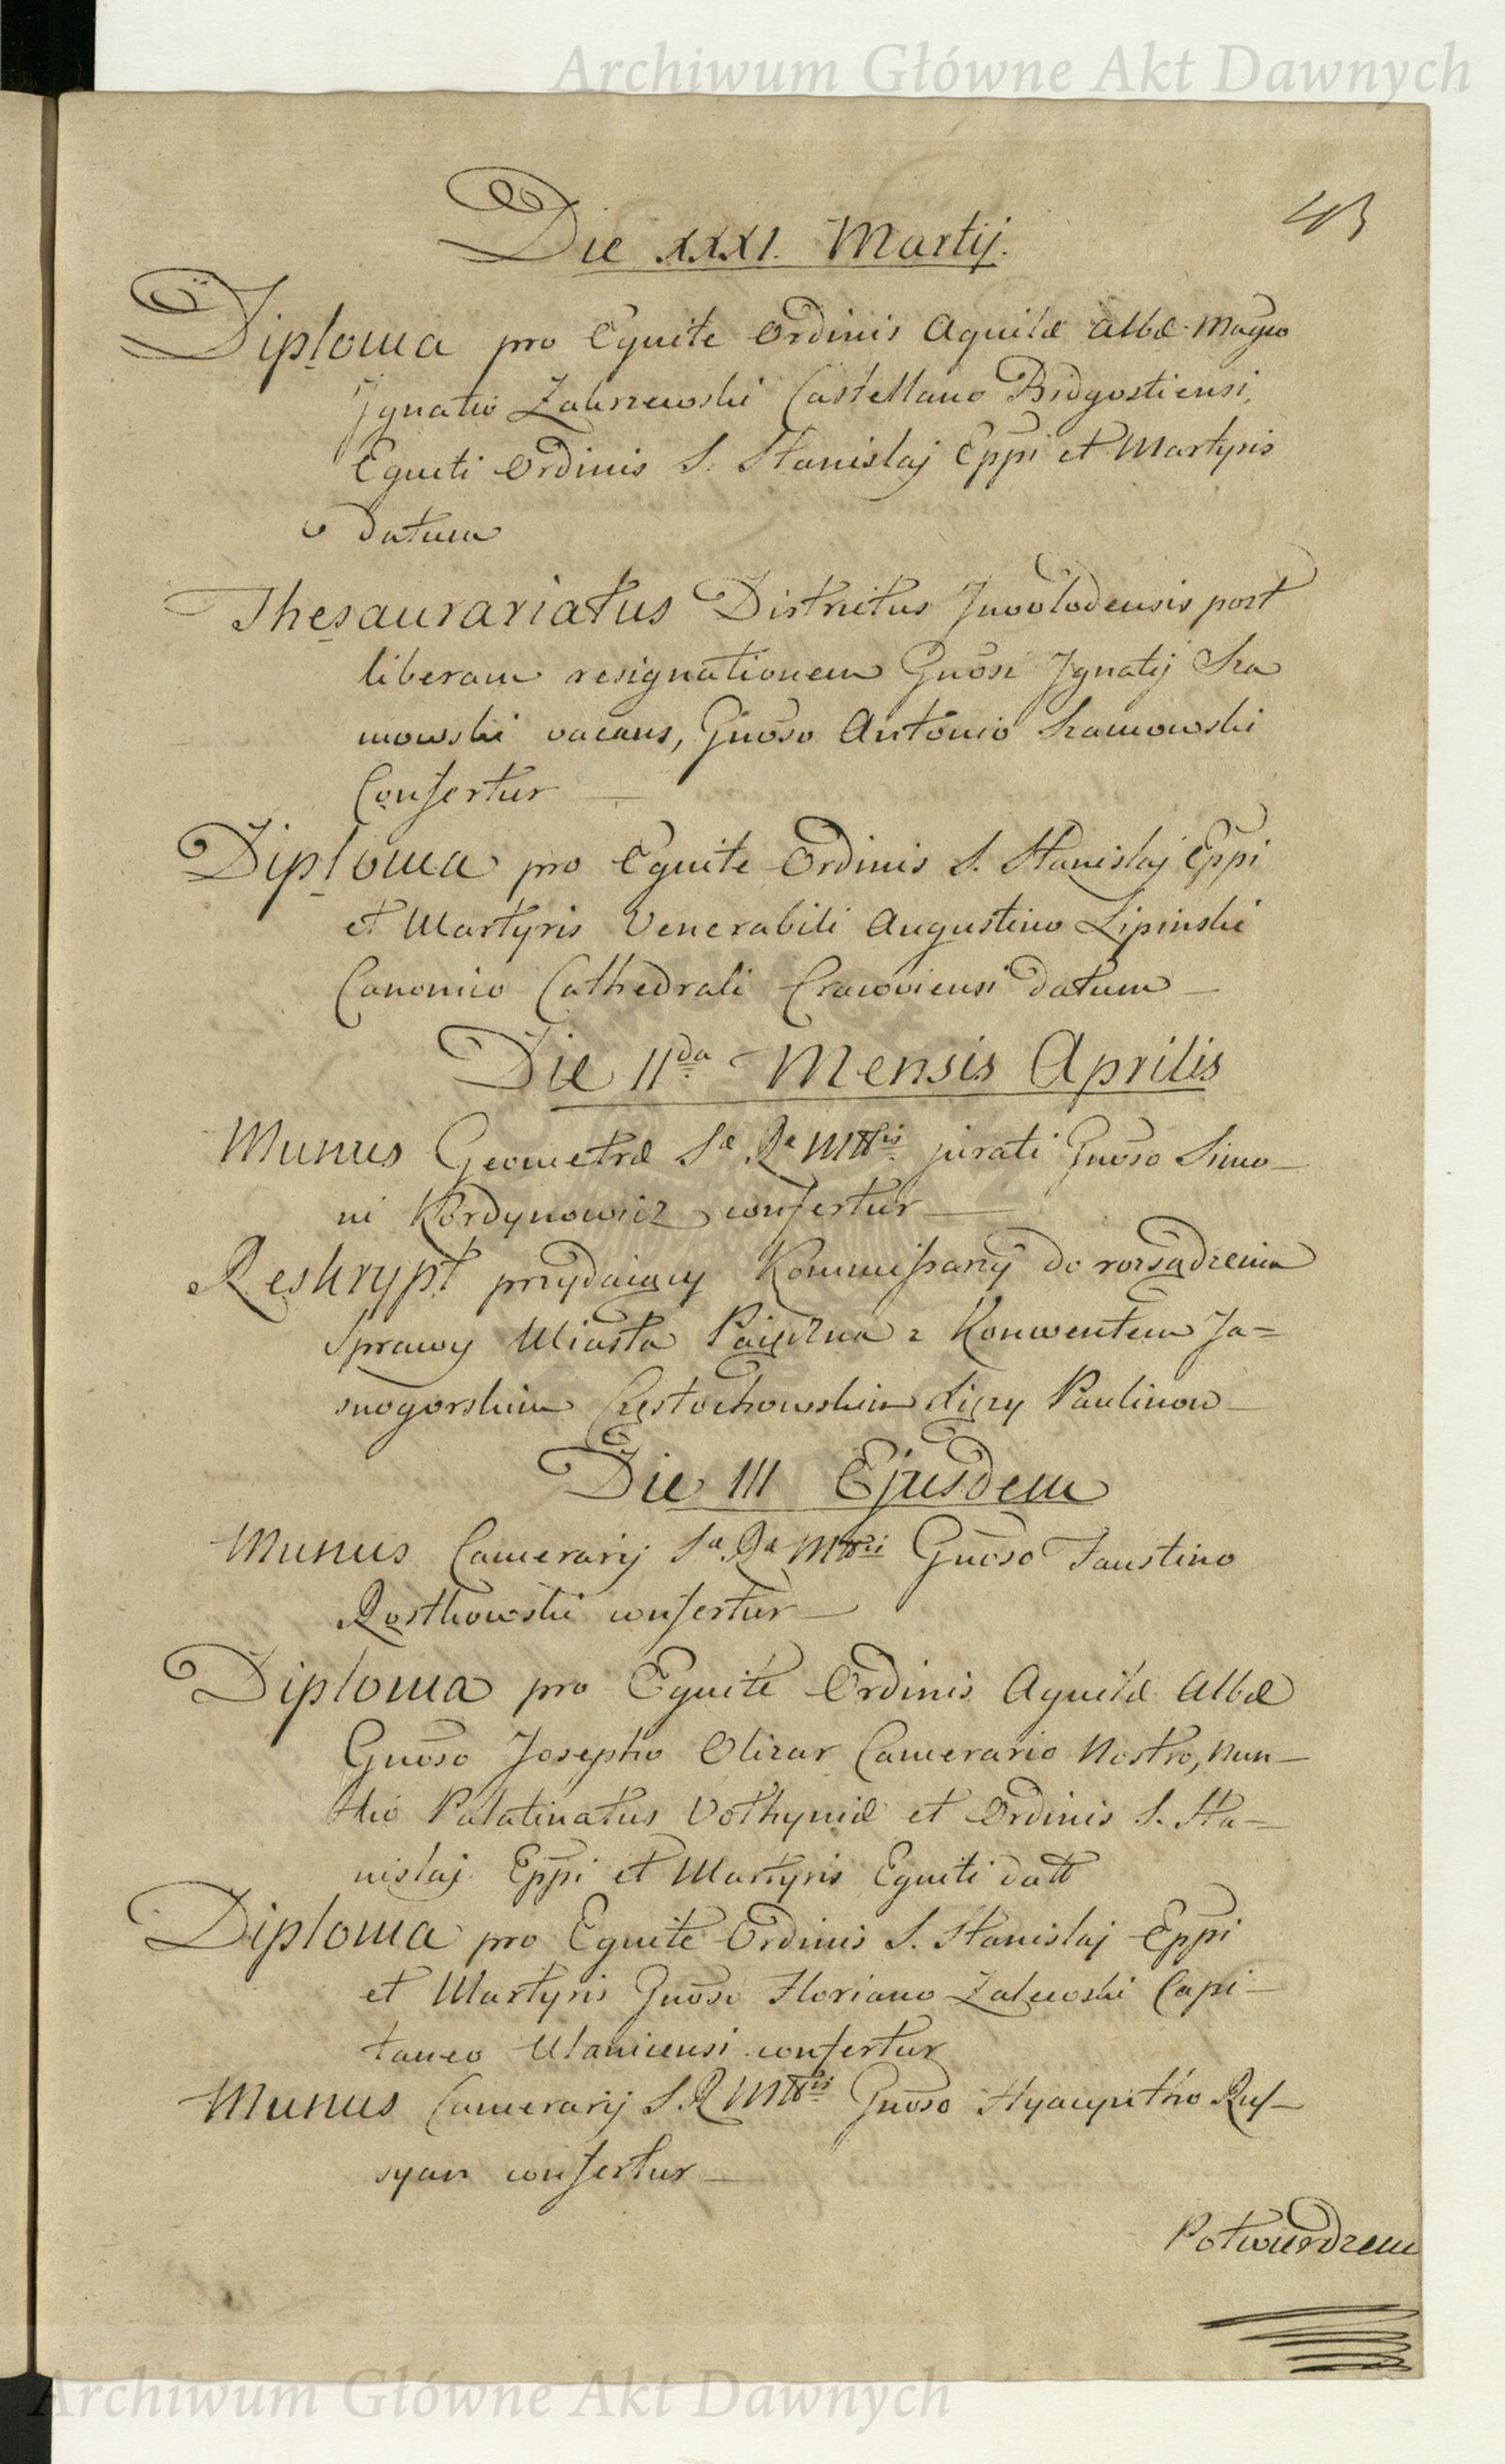 Archiwum Główne Akt Dawnych
43
Die XXXI. Martij.
Diploma pro Equite Ordinis Aquilæ Albæ Magco
Ignatio Zakrzewski Castellano Bidgostiensi,
Equiti Ordinis S. Stanislaj Eppi et Martyris
datum
Thesaurariatus Districtus Inovlodensis post
liberam resignationem Gnosi Ignatij Sza
mowski vacans, Gnoso Antonio Szamowski
Confertur
Diploma pro Equite Ordinis S. Stanislaj Eppi
et Martyris Venerabili Augustino Lipinski
Canonico Cathedrali Cracoviensi datum
Die IIda Mensis Aprilis
Munus Geometræ Sæ Ræ Mttis jurati Gnoso Simo-
ni Kordynowicz confertur
Reskrypt przydaiący Kommissarzÿ do rozsądzenia
Sprawy Miasta Paięczna z Konwentem Ja=
snogorskim Częstochowskim Xięży Paulinow
Die III Ejusdem
Munus Camerarij Sa Ra Mttis Gnoso Faustino
Rostkowski confertur
Diploma pro Equite Ordinis Aquilæ Albæ
Gnoso Josepho Olizar Camerario Nostro, Nun-
tio Palatinatus Volhyniæ et Ordinis S. Sta=
nislaj Eppi et Martyris Equiti datt
Diploma pro Equite Ordinis S. Stanislaj Eppi
et Martyris Gnoso Floriano Zalewski Capi-
taneo Ulanicensi confertur
Munus Camerarij S. R. Mttis Gnoso Hyacyntho Rus-
syan confertur
Potwierdzen
Archiwum Główne Akt Dawnych